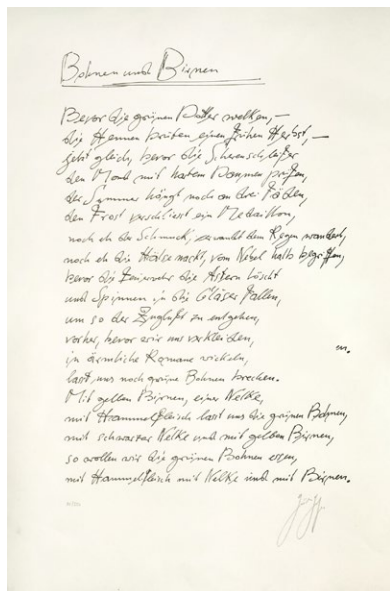 Bohnen und Birnen
Bevor die grünen Dotter welken, –
die Hennen brüten einen frühen Herbst, –
jetzt gleich, bevor die Scherenschleifer
den Mond mit hartem Daumen prüfen,
der Sommer hängt noch an drei Fäden,
den Frost verschliesst ein Medaillon,
noch eh der Schmuck, verwandt dem Regen wandert,
noch eh die Hälse nackt, vom Nebel halb begriffen,
bevor die Feuerwehr die Astern löscht
und Spinnen in die Gläser fallen,
um so der Zugluft zu entgehen,
vorher, bevor wir uns verkleiden,
in ärmliche Romane wickeln,
lasst uns noch grüne Bohnen brechen.
Mit gelben Birnen, einer Nelke,
mit Hammelfleisch lasst uns die grünen Bohnen,
mit schwarzer Nelke und mit gelben Birnen,
so wollen wir die grünen Bohnen essen,
mit Hammelfleisch mit Nelke und mit Birnen.